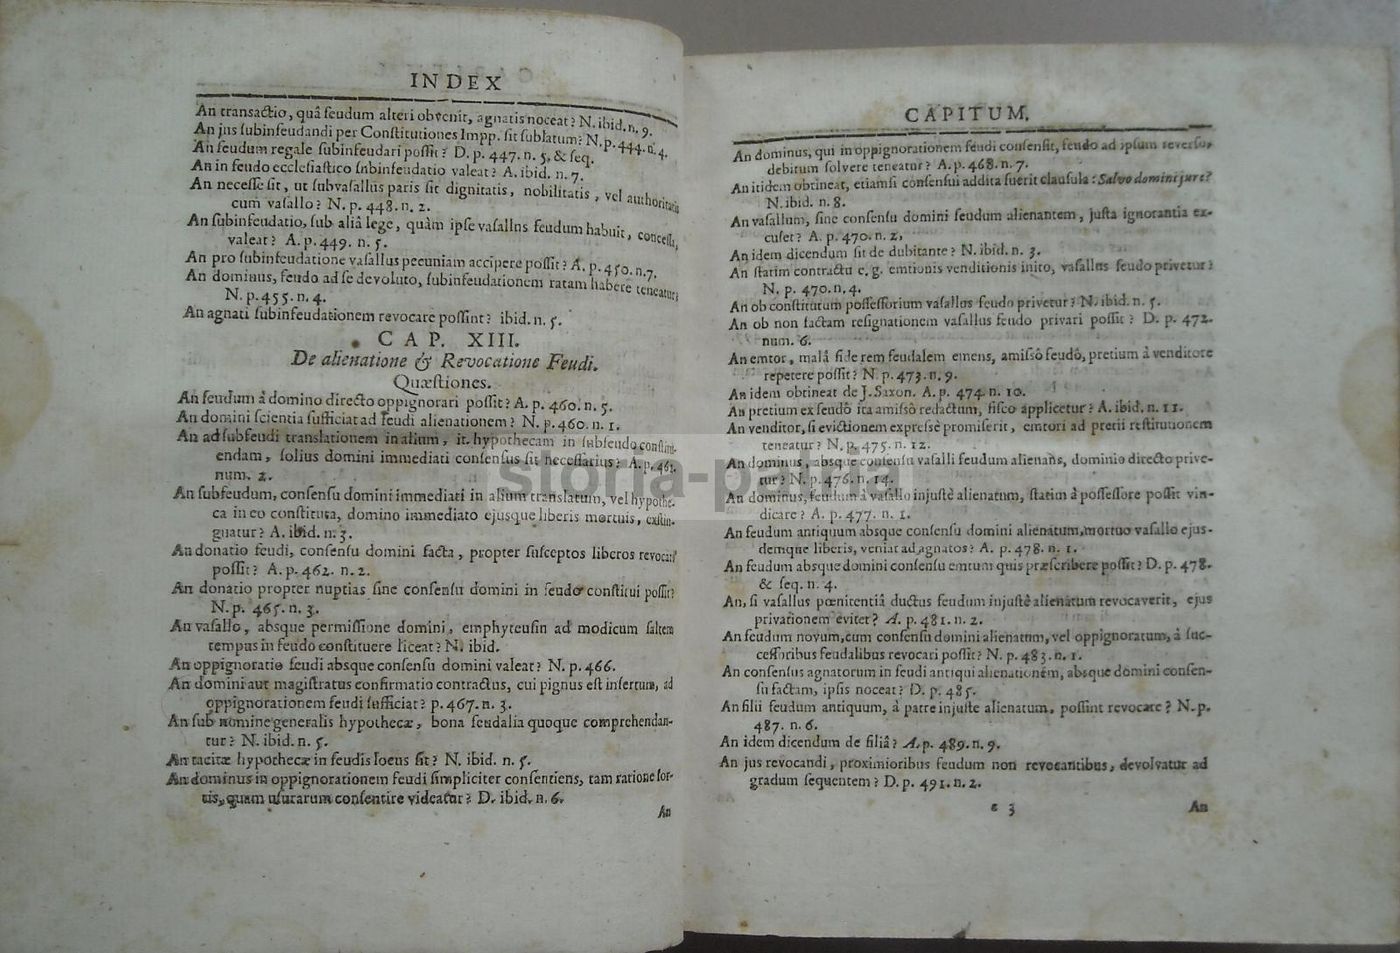 INDEX
An transactio, quâ feudum alteri obvenit, agnatis noceat? N. ibid. n. 9.
An jus subinfeudandi per Constitutiones Impp. sit sublatum? N. p. 444. n. 4.
An feudum regale subinfeudari possit? D. p. 447. n. 5. & seq.
An in feudo ecclesiastico subinfeudatio valeat? A. ibid. n. 7.
An necesse sit, ut subvasallus paris sit dignitatis, nobilitatis, vel authoritatis
cum vasallo? N. p. 448. n. 2.
An subinfeudatio, sub aliâ lege, quàm ipse vasallus feudum habuit, concessa,
valeat? A. p. 449. n. 5.
An pro subinfeudatione vasallus pecuniam accipere possit? A. p. 450. n. 7.
An dominus, feudo ad se devoluto, subinfeudationem ratam habere teneatur?
N. p. 455. n. 4.
An agnati subinfeudationem revocare possint? ibid. n. 5.
CAP. XIII.
De alienatione & Revocatione Feudi.
Quæstiones.
An feudum à domino directo oppignorari possit? A. p. 460. n. 5.
An domini scientia sufficiat ad feudi alienationem? N. p. 460. n. 1.
An ad subfeudi translationem in alium, it. hypothecam in subfeudo constitu-
endam, solius domini immediati consensus sit necessarius? A. p. 461.
num. 2.
An subfeudum, consensu domini immediati in alium translatum, vel hypothe-
ca in eo constituta, domino immediato ejusque liberis mortuis, extin-
guatur? A. ibid. n. 3.
An donatio feudi, consensu domini facta, propter susceptos liberos revocari
possit? A. p. 462. n. 2.
An donatio propter nuptias sine consensu domini in feudo constitui possit?
N. p. 465. n. 3.
An vasallo, absque permissione domini, emphyteusin ad modicum saltem
tempus in feudo constituere liceat? N. ibid.
An oppignoratio feudi absque consensu domini valeat? N. p. 466.
An domini aut magistratus confirmatio contractus, cui pignus est insertum, ad
oppignorationem feudi sufficiat? p. 467. n. 3.
An sub nomine generalis hypothecæ, bona feudalia quoque comprehendan-
tur? N. ibid. n. 5.
An tacitæ hypothecæ in feudis locus sit? N. ibid. n. 5.
An dominus in oppignorationem feudi simpliciter consentiens, tam ratione for-
tis, quam usurarum consentire videatur? D. ibid. n. 6.
An
CAPITUM.
An dominus, qui in oppignorationem feudi consensit, feudo ad ipsum reverso,
debitum solvere teneatur? A. p. 468. n. 7.
An itidem obtineat, etiamsi consensui addita fuerit clausula: Salvo domini jure?
N. ibid. n. 8.
An vasallum, sine consensu domini feudum alienantem, justa ignorantia ex-
cuset? A. p. 470. n. 2.
An idem dicendum sit de dubitante? N. ibid. n. 3.
An statim contractu e. g. emtionis venditionis inito, vasallus feudo privetur?
N. p. 470. n. 4.
An ob constitutum possessorium vasallus feudo privetur? N. ibid. n. 5.
An ob non factam resignationem vasallus feudo privari possit? D. p. 472.
num. 6.
An emtor, malâ fide rem feudalem emens, amissô feudô, pretium à venditore
repetere possit? N. p. 473. n. 9.
An idem obtineat de J. Saxon. A. p. 474. n. 10.
An pretium ex feudô ita amissô redactum, fisco applicetur? A. ibid. n. 11.
An venditor, si evictionem expressè promiserit, emtori ad pretii restitutionem
teneatur? N. p. 475. n. 12.
An dominus, absque consensu vasalli feudum alienans, dominio directo prive-
tur? N. p. 476. n. 14.
An dominus, feudum à vasallo injustè alienatum, statim à possessore possit vin-
dicare? A. p. 477. n. 1.
An feudum antiquum absque consensu domini alienatum, mortuo vasallo ejus-
demque liberis, veniat ad agnatos? A. p. 478. n. 1.
An feudum absque domini consensu emtum quis præscribere possit? D. p. 478.
& seq. n. 4.
An, si vasallus pœnitentiâ ductus feudum injustè alienatum revocaverit, ejus
privationem evitet? A. p. 481. n. 2.
An feudum novum, cum consensu domini alienatum, vel oppignoratum, à suc-
cessoribus feudalibus revocari possit? N. p. 483. n. 1.
An consensus agnatorum in feudi antiqui alienationem, absque domini consen-
su factam, ipsis noceat? D. p. 485.
An filii feudum antiquum, à patre injuste alienatum, possint revocare? N. p.
487. n. 6.
An idem dicendum de filiâ? A. p. 489. n. 9.
An jus revocandi, proximioribus feudum non revocantibus, devolvatur ad
gradum sequentem? D. p. 491. n. 2.
e 3
An
storia-patria